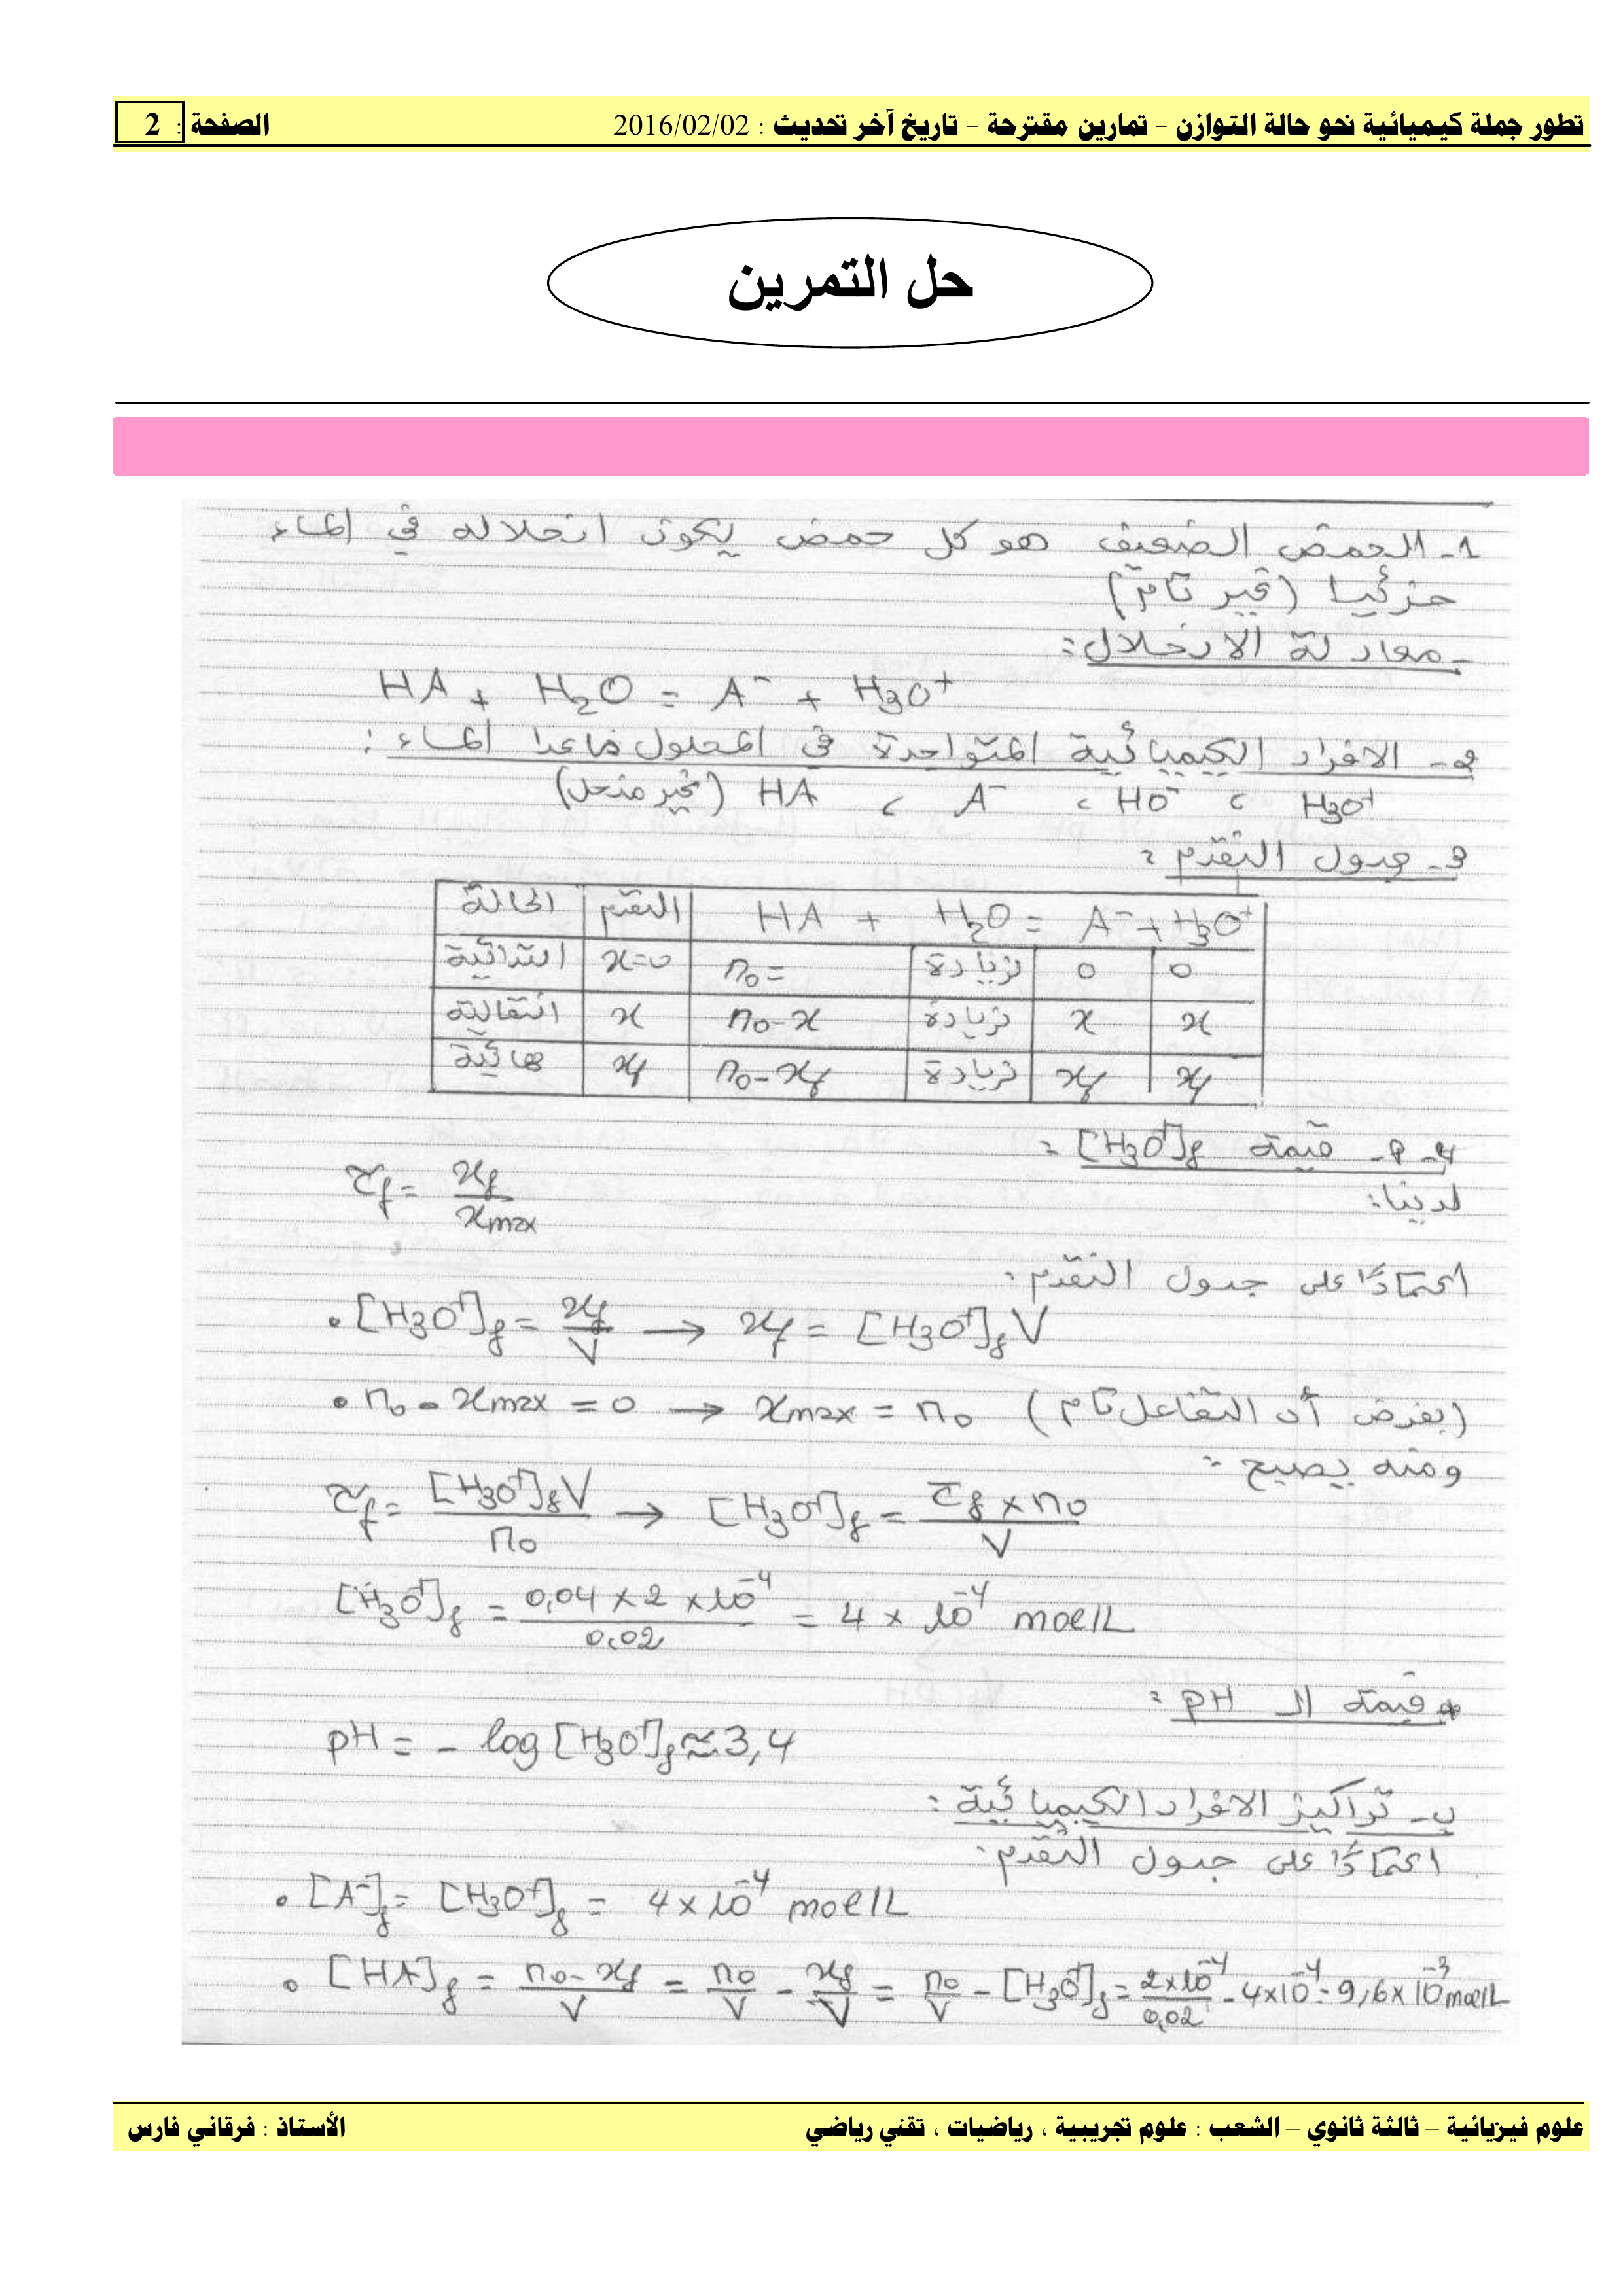 تطور جملة كيميائية نحو حالة التوازن – تمارين مقترحة – تاريخ آخر تحديث : 2016/02/02 الصفحة : 2
حل التمرين
1- الحمض الضعيف هو كل حمض يكون انحلاله في الماء
جزئيا (غير تام)
- معادلة الانحلال :
HA + H₂O = A⁻ + H₃O⁺
2- الافراد الكيميائية المتواجدة في المحلول ماعدا الماء :
H₃O⁺ ، HO⁻ ، A⁻ ، HA (غير منحل)
3- جدول التقدم :
الحالة التقدم HA + H₂O = A⁻ + H₃O⁺
ابتدائية x=0 n₀= بزيادة 0 0
انتقالية x n₀-x بزيادة x x
نهائية xf n₀-xf بزيادة xf xf
4-أ- قيمة [H₃O⁺]f :
لدينا :
τf = xf / xmax
اعتمادًا على جدول التقدم :
• [H₃O⁺]f = xf / V → xf = [H₃O⁺]f V
• n₀ - xmax = 0 → xmax = n₀ (بفرض أن التفاعل تام)
ومنه يصبح :
τf = [H₃O⁺]f V / n₀ → [H₃O⁺]f = τf × n₀ / V
[H₃O⁺]f = 0,04 × 2 × 10⁻⁴ / 0,02 = 4 × 10⁻⁴ mol/L
* قيمة الـ pH :
pH = - log [H₃O⁺]f ≈ 3,4
ب- تراكيز الافراد الكيميائية :
اعتمادًا على جدول التقدم :
• [A⁻]f = [H₃O⁺]f = 4 × 10⁻⁴ mol/L
• [HA]f = n₀-xf / V = n₀ / V - xf / V = n₀ / V - [H₃O⁺]f = 2×10⁻⁴ / 0,02 - 4×10⁻⁴ = 9,6 × 10⁻³ mol/L
علوم فيزيائية – ثالثة ثانوي – الشعب : علوم تجريبية ، رياضيات ، تقني رياضي الأستاذ : فرقاني فارس